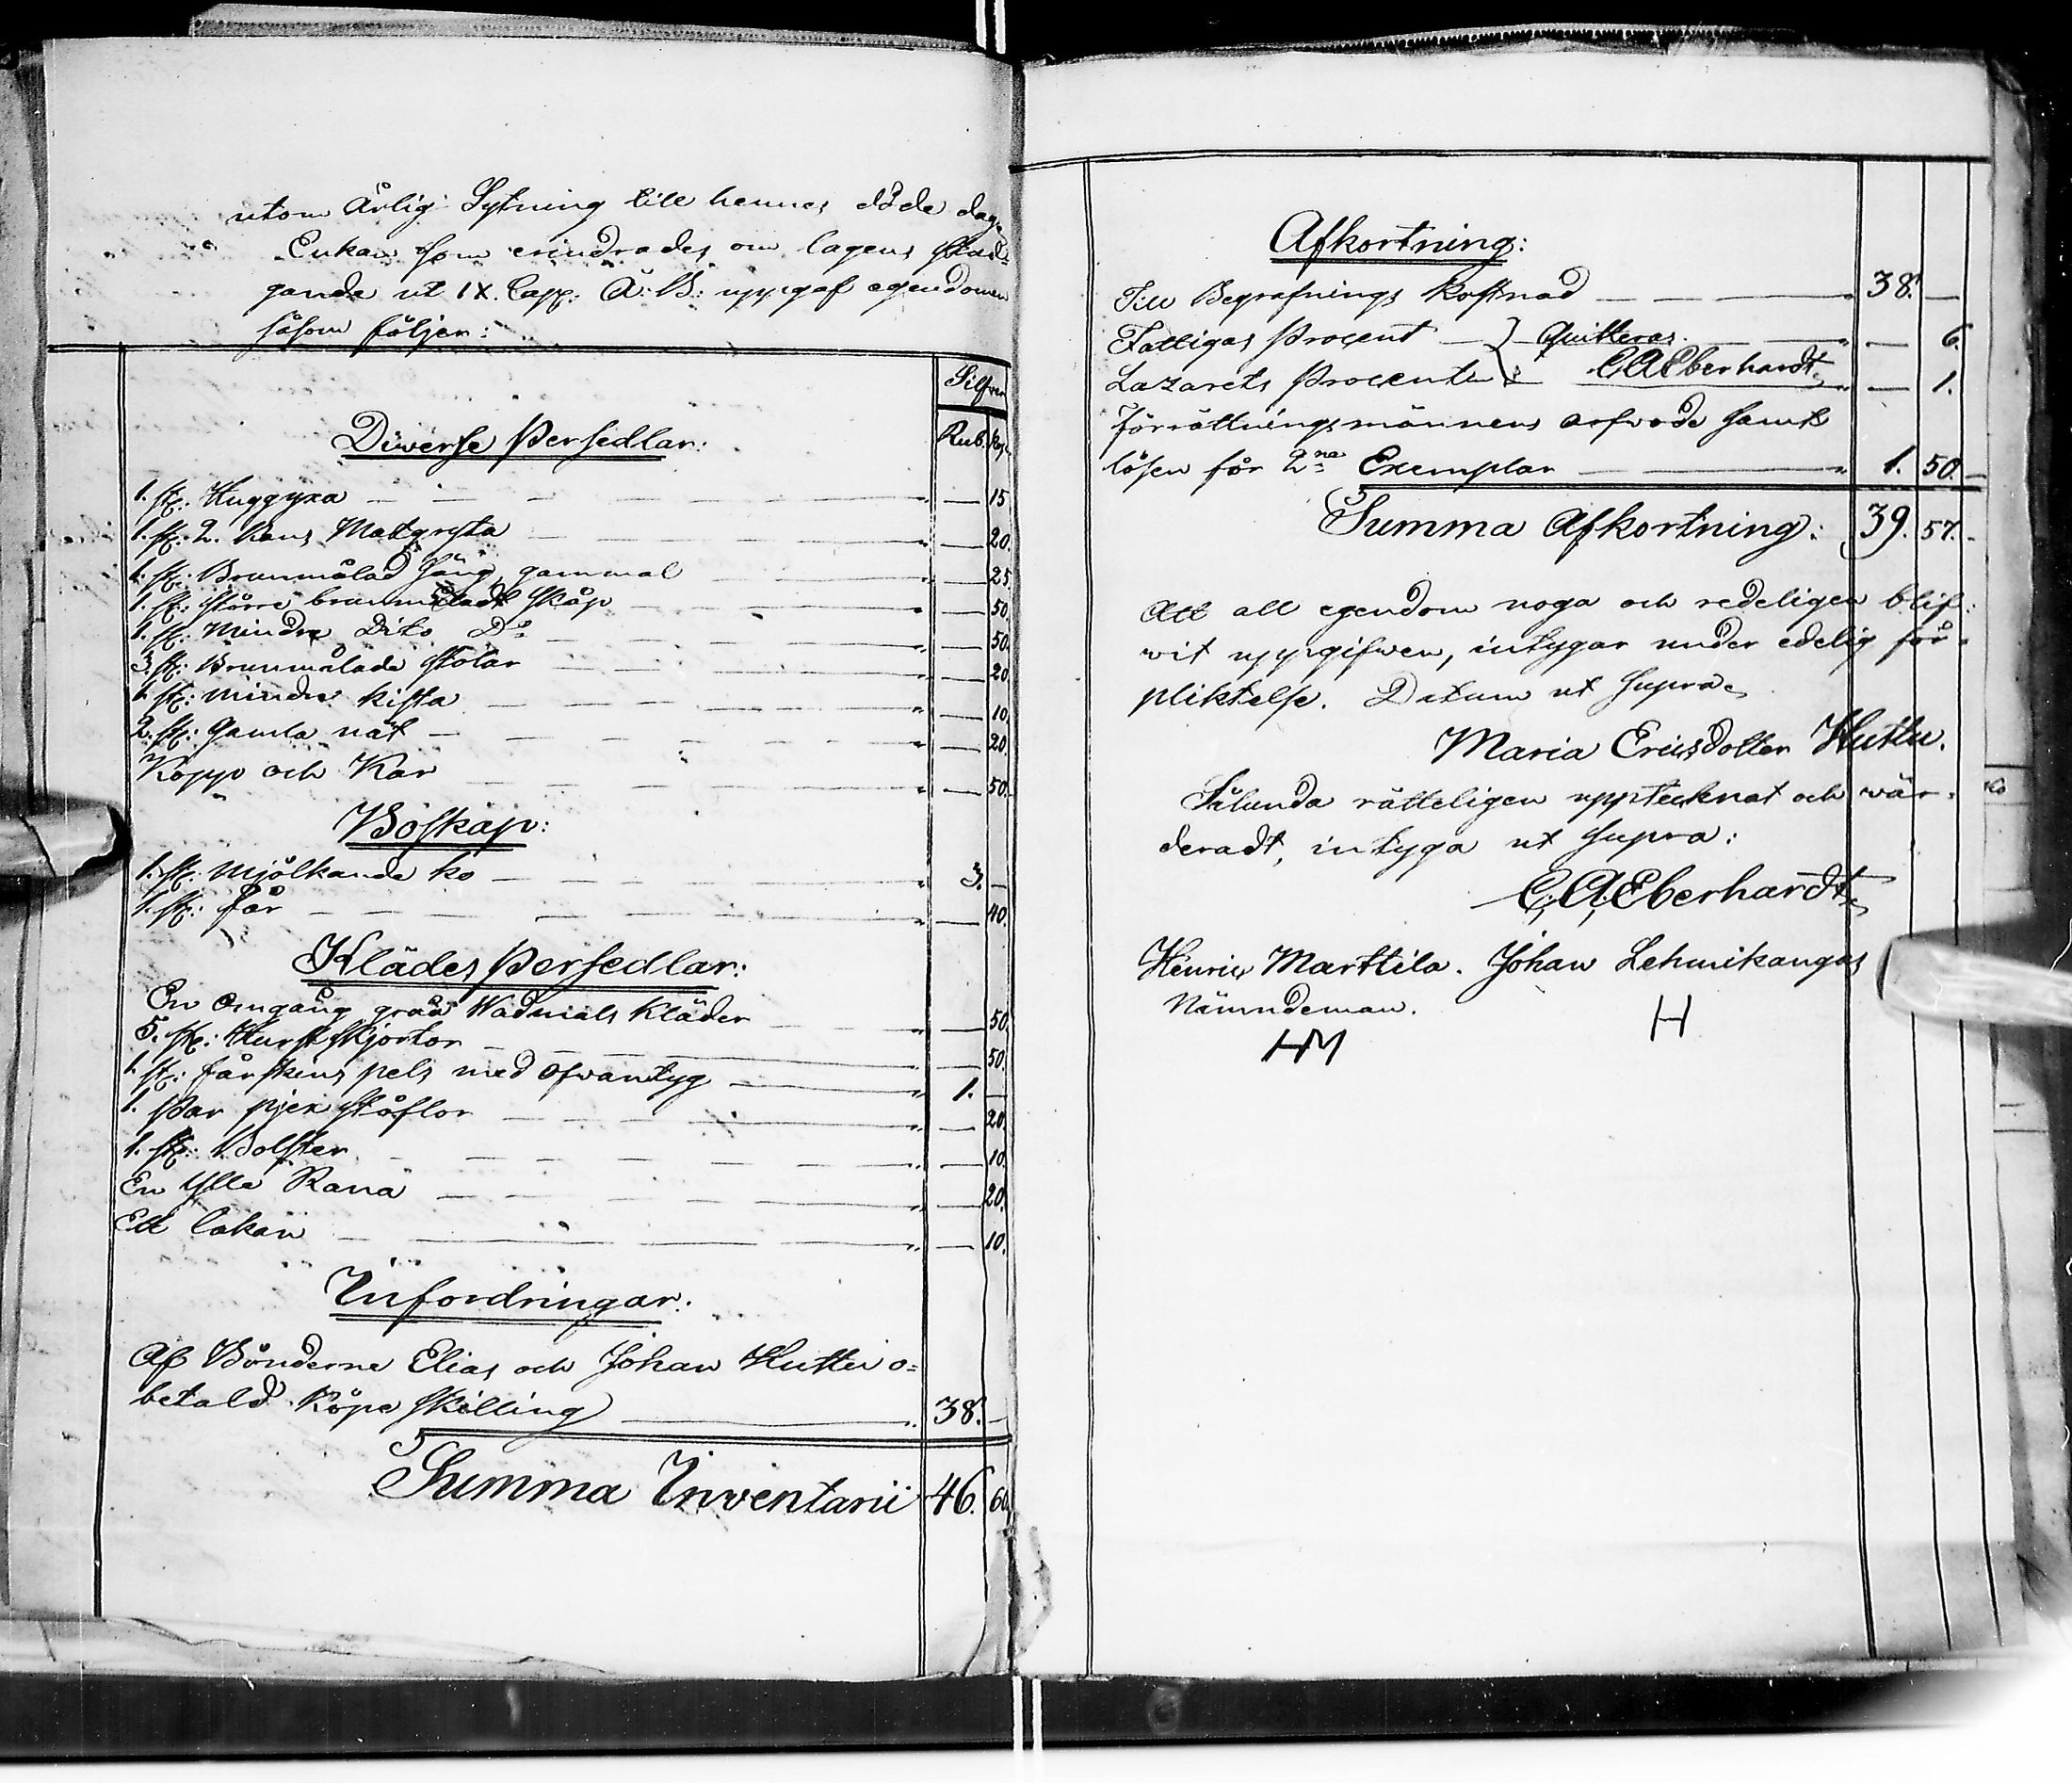 utom årlig Sytning till hennes döde dag.
Enkan som erindrades om lagens stad=
gande ut IX. Cap: Ä: B: uppgaf egendomen
såsom följer:
Silfver
Rub. Kop.
Diverse Persedlar:
1. st: Huggyxa — 15.
1. st: 2. kans Matgryta — 20.
1. st: Brunmålad säng, gammal — 25.
1. st: större brunmåladt skåp — 50.
1. st: Mindre Dito Do — 50.
3. st: Brunmålade stolar — 20.
1. st: mindre kista — 10.
2. st: gamla nät — 20.
Kopp och Kar — 50.
Boskap:
1. st: mjölkande ko 3. —
1. st: får — 40.
Klädes Persedlar:
En omgång gråa Wadmals Kläder — 50.
5. st: Hurst Skjortor — 50.
1. st: fårskins pels med ofvantyg 1. —
1. Par pjex stöflor — 20.
1. st: Bolster — 10.
En Ylle Rana — 20.
Ett lakan — 10.
Infordringar:
Af Bönderne Elias och Johan Huttu o=
betald Köpe skilling 38. —
Summa Inventarii 46. 60.
Afkortning:
Till Begrafnings Kostnad 38. —
Fattigas Procent } quitteras — 6.
Lazarets Procenten } C A Eberhardt — 1.
Förrättningsmännens arfvode samt
lösen för 2ne Exemplar 1. 50.
Summa Afkortning: 39. 57.
Att all egendom noga och redeligen blif=
vit uppgifven, intygar under edelig för=
pliktelse. Datum ut supra
Maria Ericsdotter Huttu.
Sålunda rätteligen upptecknat och vär=
deradt, intyga ut supra:
C. A. Eberhardt
Henric Marttila. Johan Lehmikangas
Nämndeman. H
HM